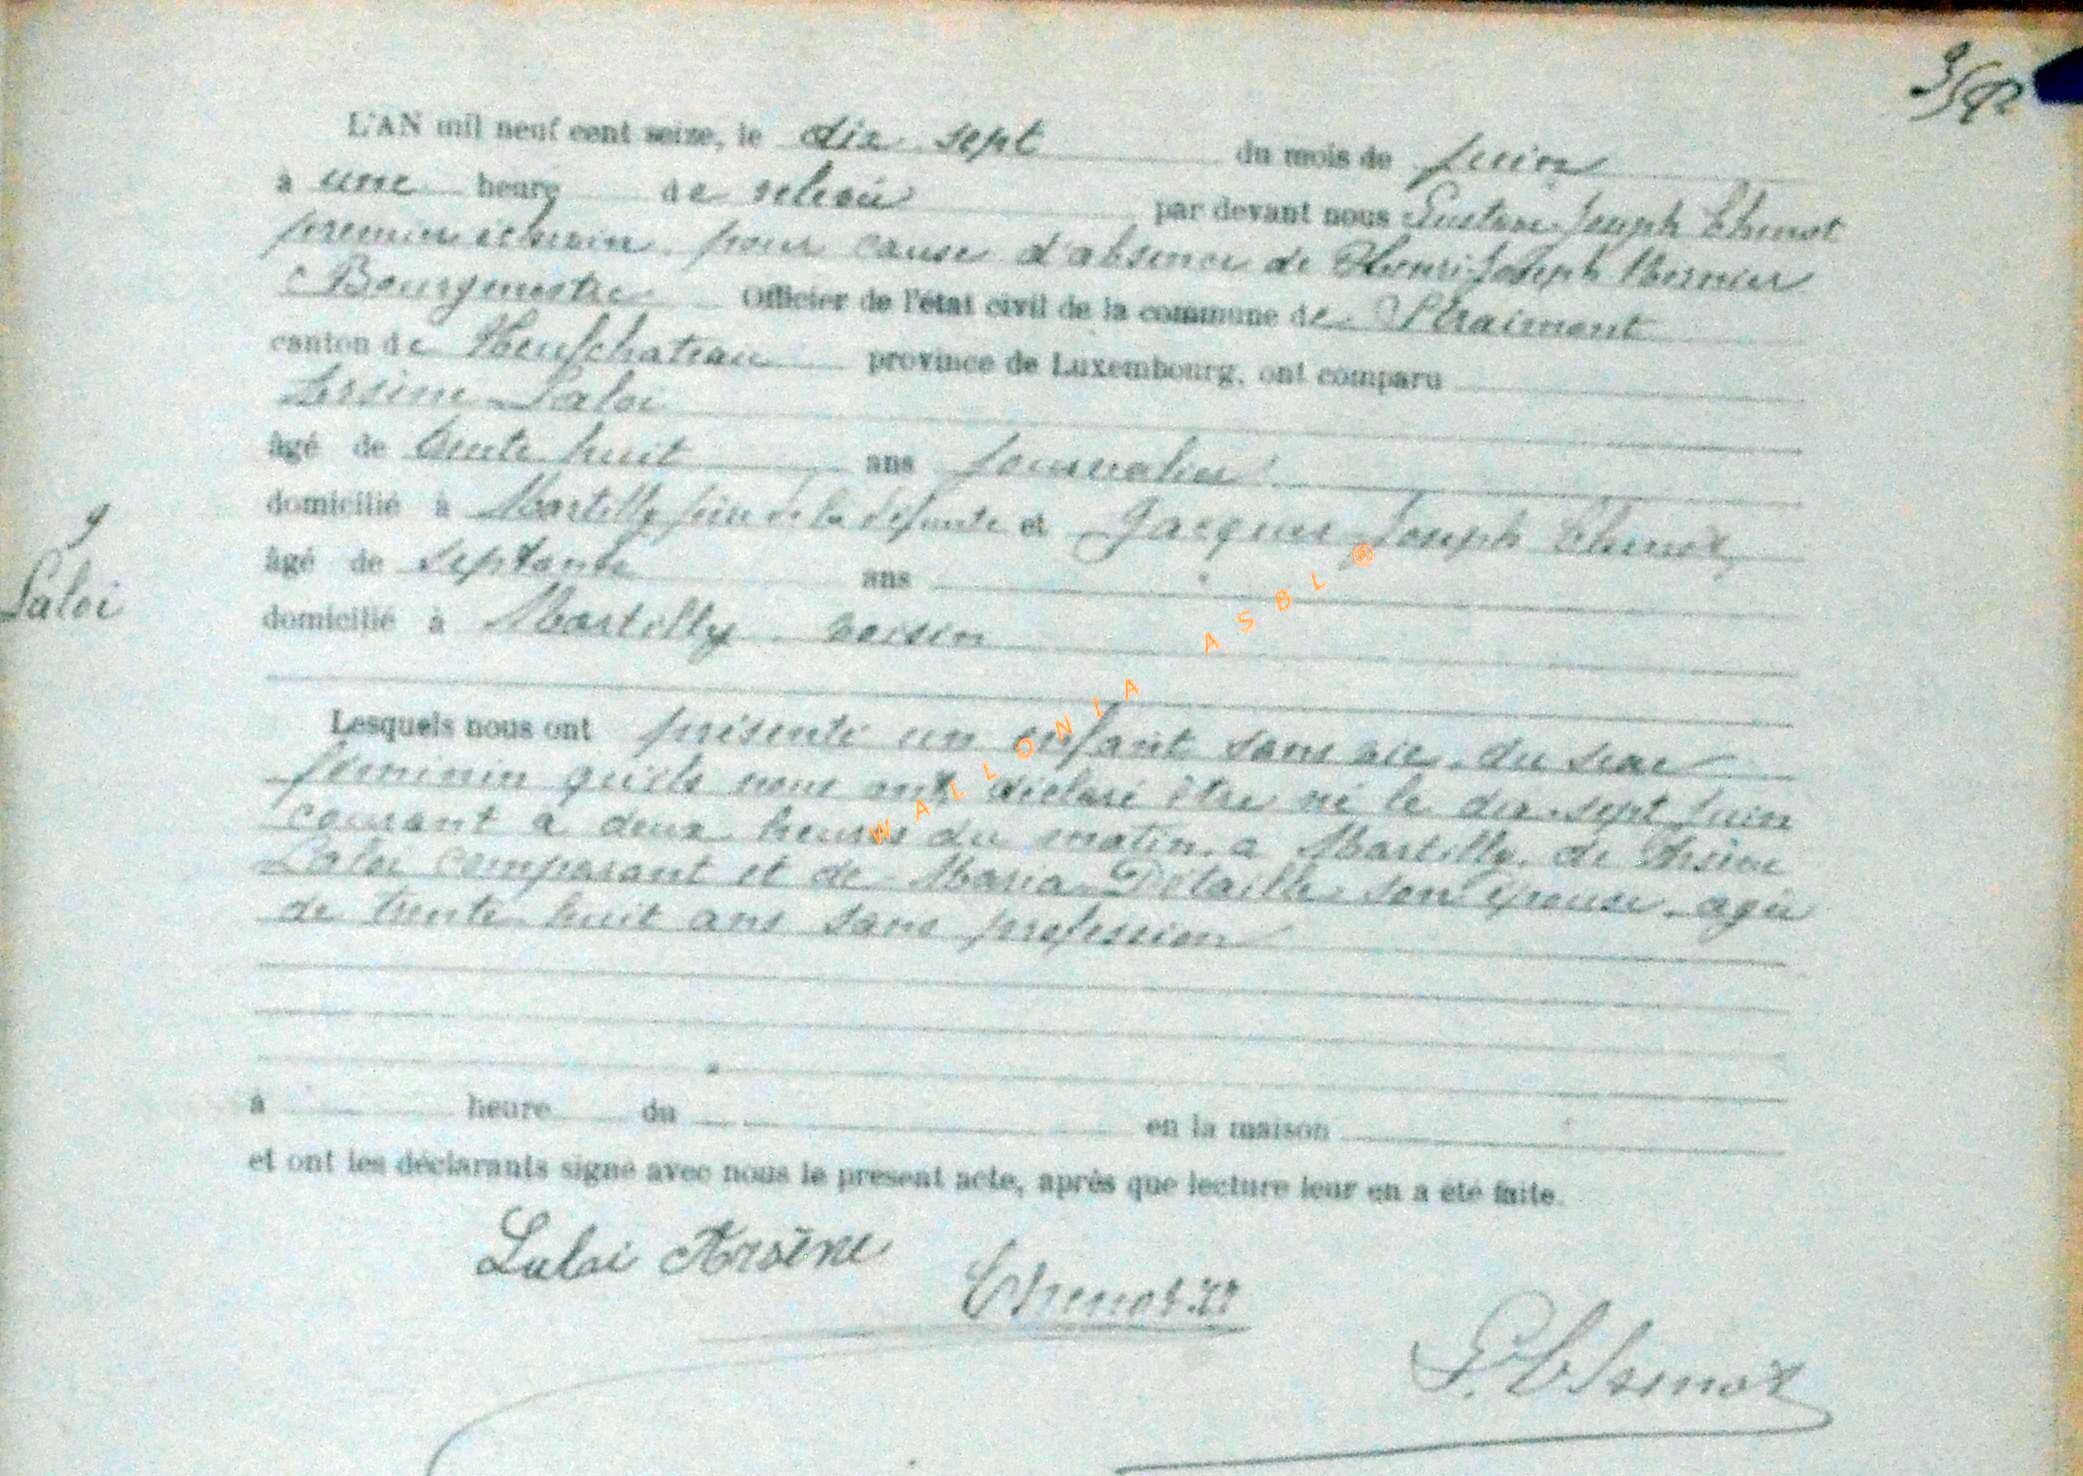 L'AN mil neuf cent seize, le dix sept du mois de Juin
à une heure de relevée par devant nous Gustave Joseph Thinot
premier échevin pour cause d'absence de Henri Joseph
Bourgmestre Officier de l'état civil de la commune de Straimont
canton de Neufchateau province de Luxembourg, ont comparu
Arsène Laloi
âgé de trente huit ans journalier
domicilié à Martilly père de la défunte et Jacques Joseph Thinot
âgé de septante ans
9
Laloi
domicilié à Martilly voisin
Lesquels nous ont présenté un enfant sans vie, du sexe
féminin qu'ils nous ont déclaré être né le dix-sept Juin
courant à deux heures du matin, a Martilly, de Arsène
Laloi comparant et de Maria Détaille son épouse agée
de trente huit ans sans profession
à heure du en la maison
et ont les déclarants signé avec nous le present acte, après que lecture leur en a été faite.
Laloi Arsène
Thinot
G. Thinot
WALLONIA ASBL ®